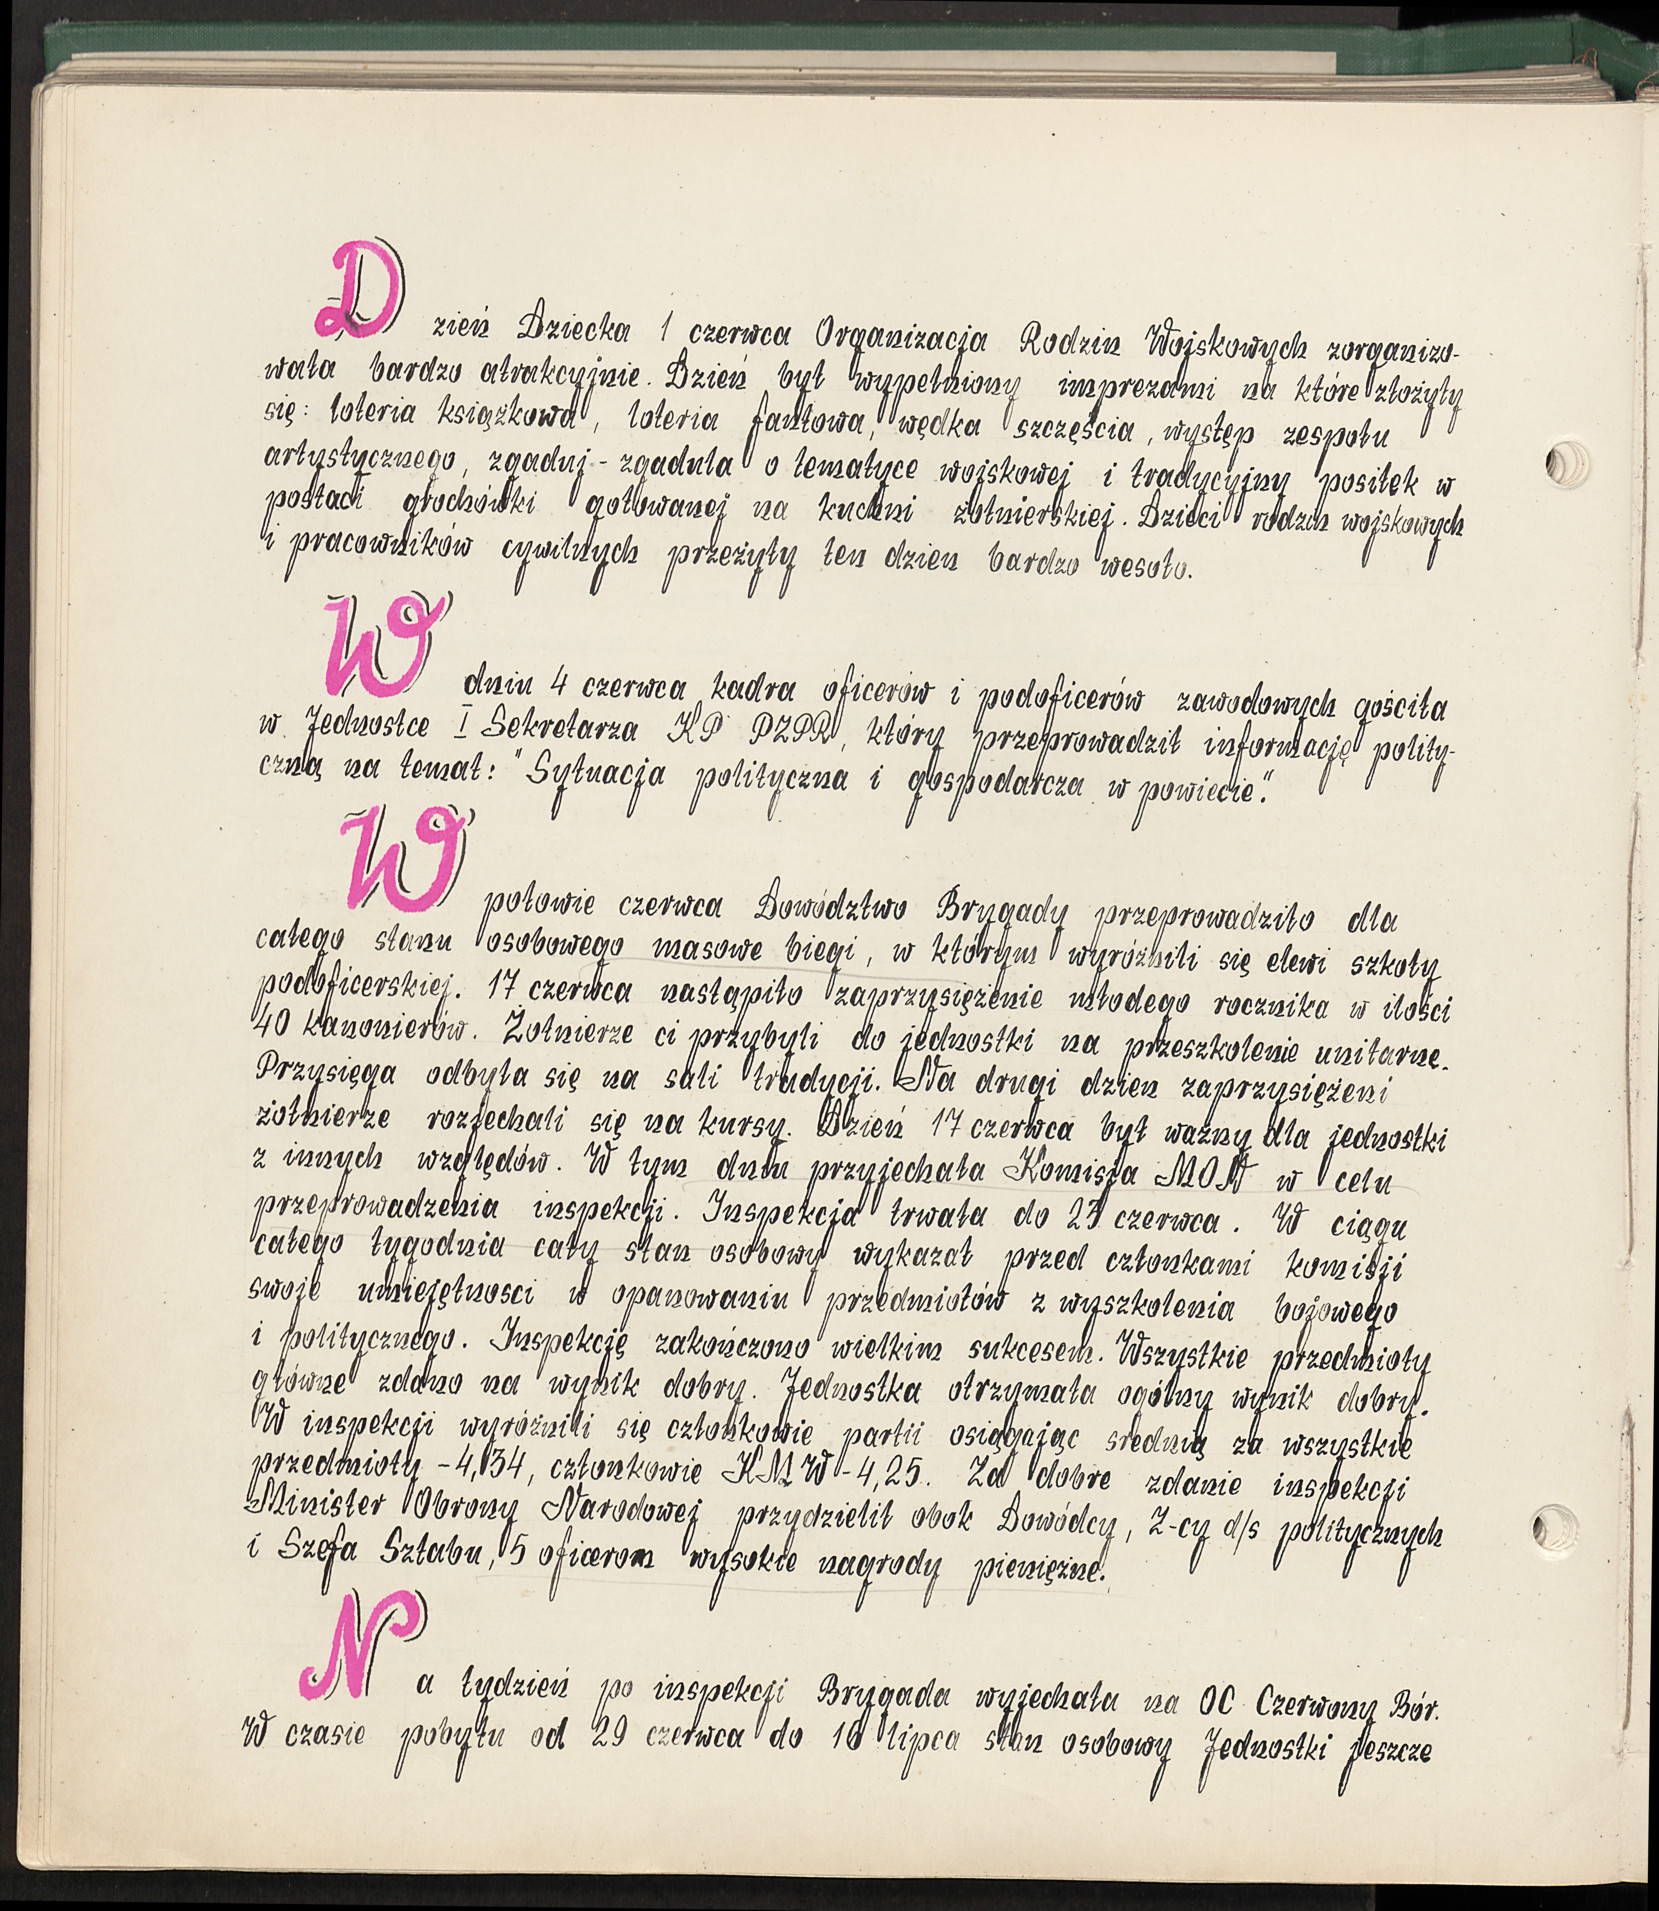 Dzień Dziecka 1 czerwca Organizacja Rodzin Wojskowych zorganizo-
wała bardzo atrakcyjnie. Dzień był wypełniony imprezami na które złożyły
się: loteria książkowa, loteria fantowa, wędka szczęścia, występ zespołu
artystycznego, zgaduj-zgadula o tematyce wojskowej i tradycyjny posiłek w
postaci grochówki gotowanej na kuchni żołnierskiej. Dzieci rodzin wojskowych
i pracowników cywilnych przeżyły ten dzien bardzo wesoło.
W dniu 4 czerwca kadra oficerów i podoficerów zawodowych gościła
w Jednostce I Sekretarza KP PZPR, który przeprowadził informację polity-
czną na temat: "Sytuacja polityczna i gospodarcza w powiecie".
W połowie czerwca Dowództwo Brygady przeprowadziło dla
całego stanu osobowego masowe biegi, w którym wyróżnili się elewi szkoły
podoficerskiej. 17 czerwca nastąpiło zaprzysiężenie młodego rocznika w ilości
40 kanonierów. Żołnierze ci przybyli do jednostki na przeszkolenie unitarne.
Przysięga odbyła się na sali tradycji. Na drugi dzien zaprzysiężeni
żołnierze rozjechali się na kursy. Dzień 17 czerwca był ważny dla jednostki
z innych względów. W tym dniu przyjechała Komisja MON w celu
przeprowadzenia inspekcji. Inspekcja trwała do 23 czerwca. W ciągu
całego tygodnia cały stan osobowy wykazał przed członkami komisji
swoje umiejętnosci w opanowaniu przedmiotów z wyszkolenia bojowego
i politycznego. Inspekcję zakończono wielkim sukcesem. Wszystkie przedmioty
główne zdano na wynik dobry. Jednostka otrzymała ogólny wynik dobry.
W inspekcji wyróżnili się członkowie partii osiągając srednią za wszystkie
przedmioty -4,34, członkowie KMW -4,25. Za dobre zdanie inspekcji
Minister Obrony Narodowej przydzielił obok Dowódcy, Z-cy d/s politycznych
i Szefa Sztabu, 5 oficerom wysokie nagrody pieniężne.
Na tydzień po inspekcji Brygada wyjechała na OC Czerwony Bór.
W czasie pobytu od 29 czerwca do 16 lipca stan osobowy Jednostki jeszcze